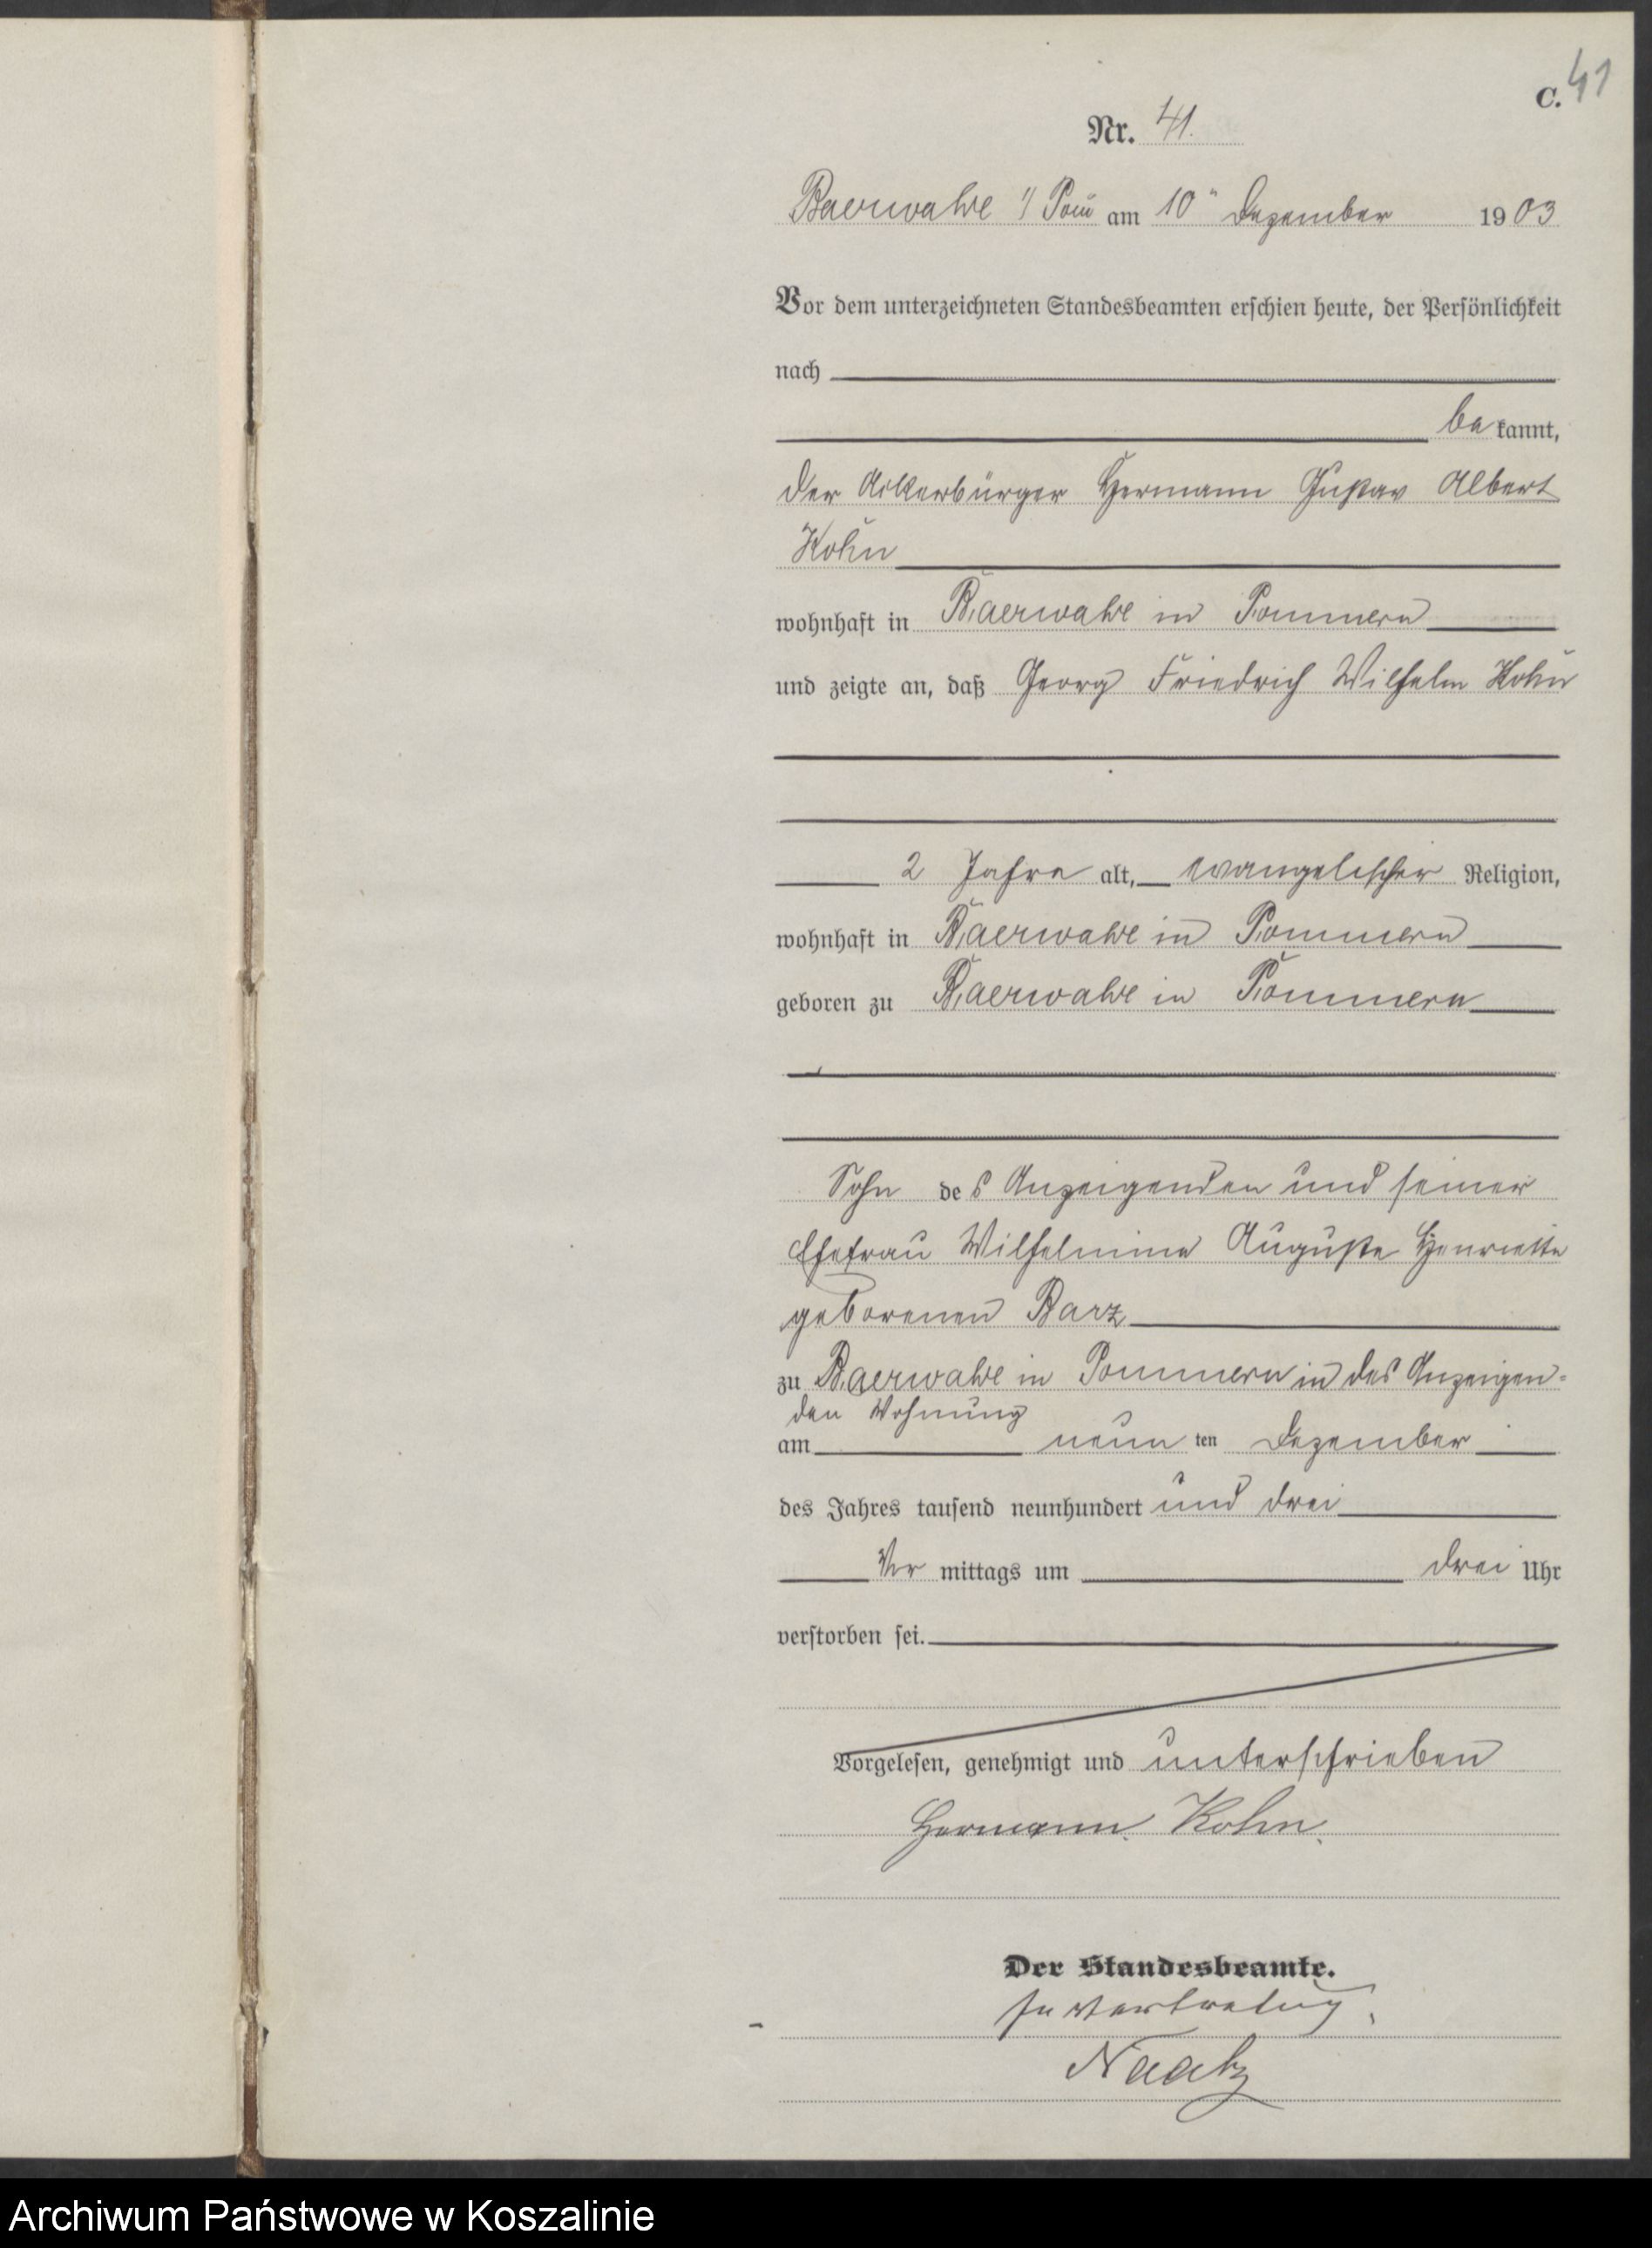 C. 41
Nr. 41.
Baerwalde i/ Pom am 10ⁿ Dezember 1903
Vor dem unterzeichneten Standesbeamten erschien heute, der Persönlichkeit
nach
bekannt,
der Ackerbürger Hermann Gustav Albert
Kohn
wohnhaft in Baerwalde in Pommern
und zeigte an, daß Georg Friedrich Wilhelm Kohn
2 Jahre alt, evangelischer Religion,
wohnhaft in Baerwalde in Pommern
geboren zu Baerwalde in Pommern
Sohn des Anzeigenden und seiner
Ehefrau Wilhelmine Auguste Henriette
geborenen Barz
zu Baerwalde in Pommern in des Anzeigen=
den Wohnung
am neunten Dezember
des Jahres tausend neunhundert und drei
Vormittags um drei Uhr
verstorben sei.
Vorgelesen, genehmigt und unterschrieben
Hermann Kohn.
Der Standesbeamte.
In Vertretung.
Naatz
Archiwum Państwowe w Koszalinie